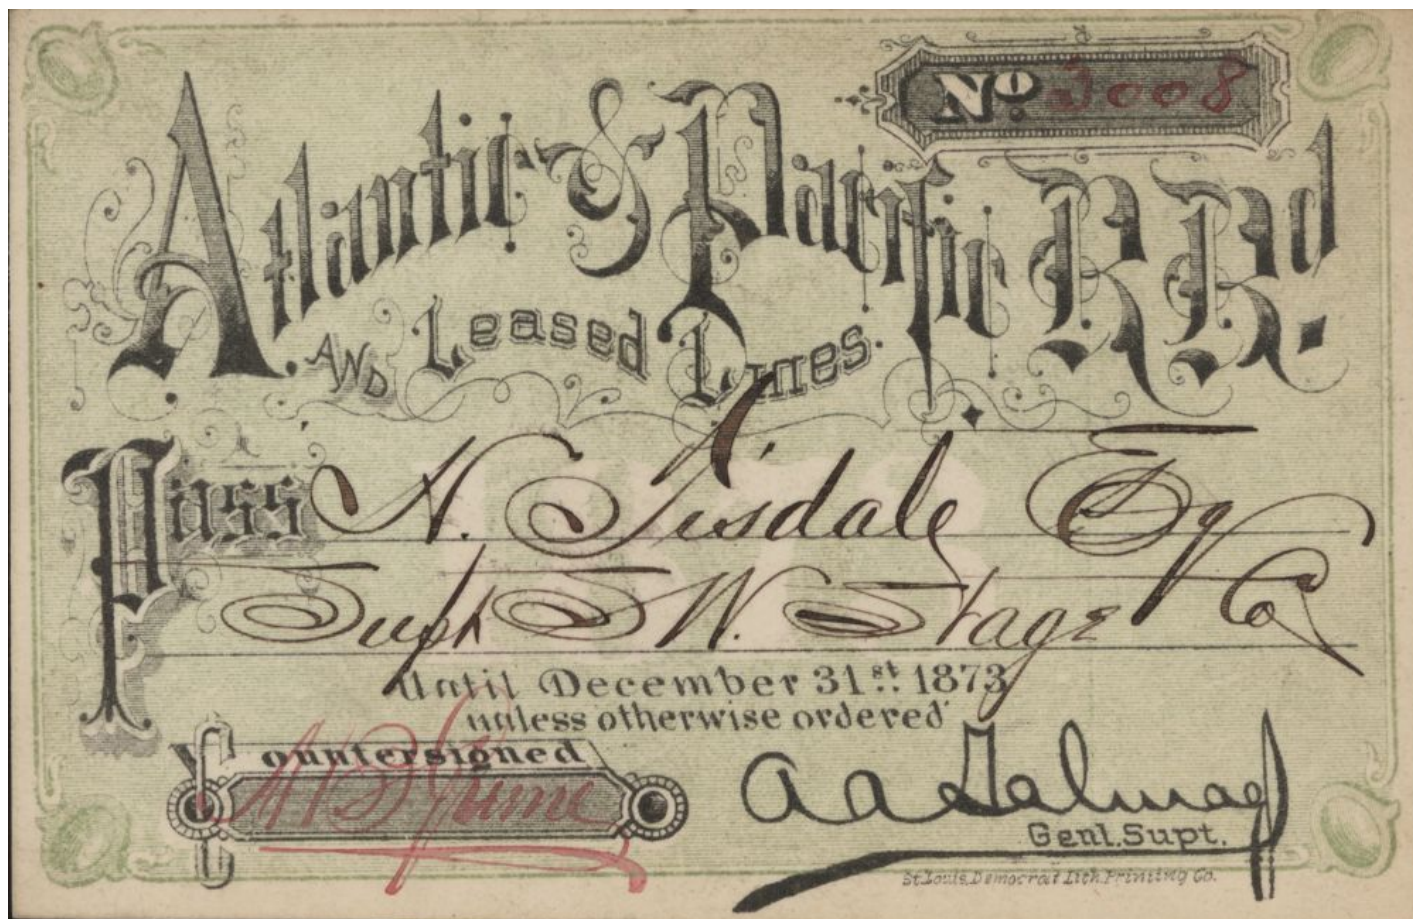 No. 3008
Atlantic & Pacific R. Rd.
AND Leased Lines.
Pass N. Tisdale Esq
Supt S. W. Stage Co
Until December 31st. 1873
unless otherwise ordered
Countersigned
A A Talmage
Genl. Supt.
St. Louis Democrat Lith. Printing Co.